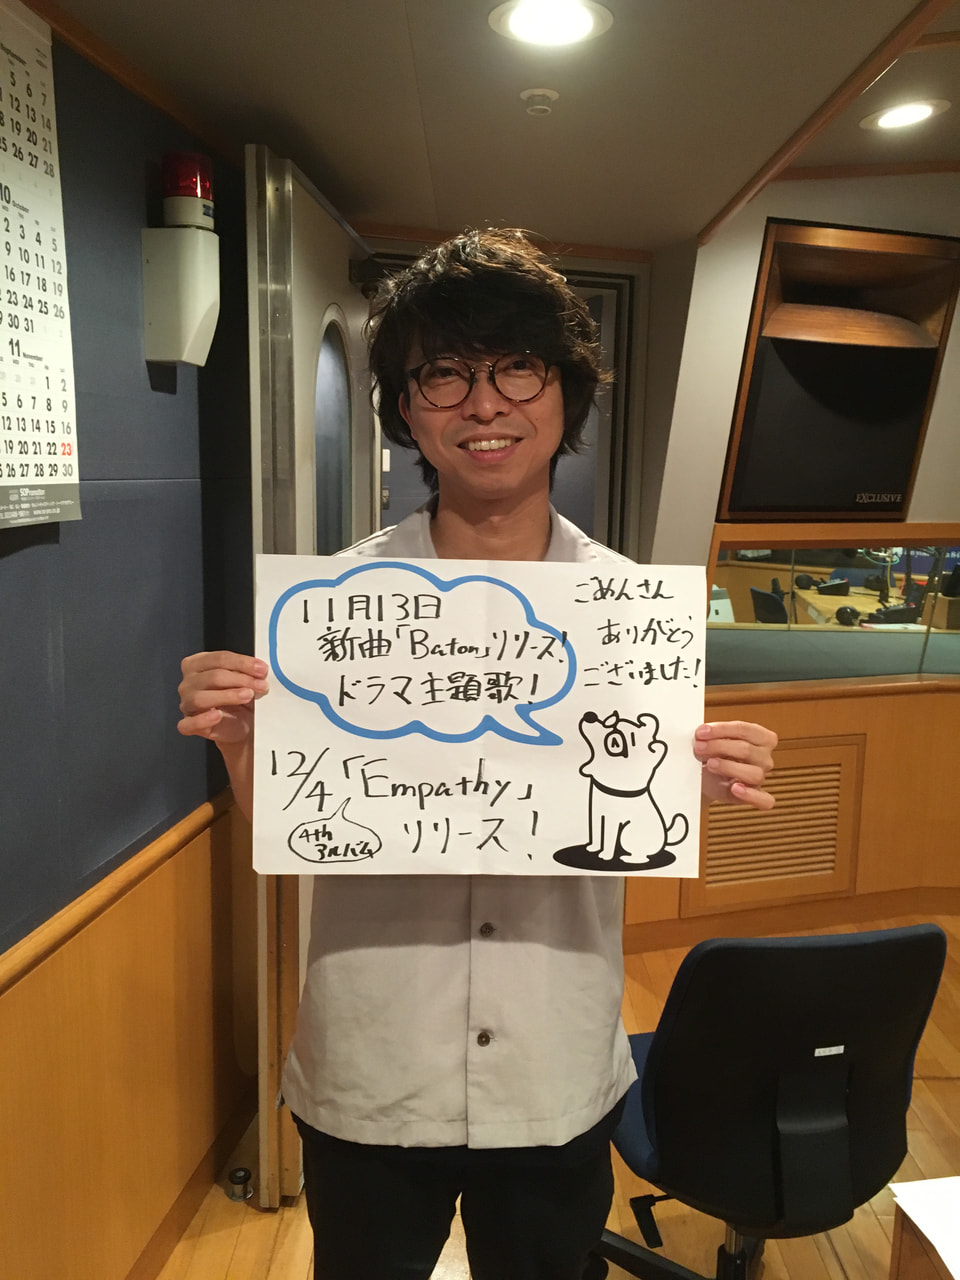 11月13日
新曲「Baton」リリース!
ドラマ主題歌!
ごめんさん
ありがとう
ございました!
12/4「Empathy」
4th
アルバム
リリース!
EXCLUSIVE
5 6 7
12 13 14
18 19 20 21
25 26 27 28
10 October
2 3 4 5
9 10 11 12
16 17 18 19
23 24 25 26
29 30 31
11 November
1 2
5 6 7 8 9
12 13 14 15 16
19 20 21 22 23
26 27 28 29 30